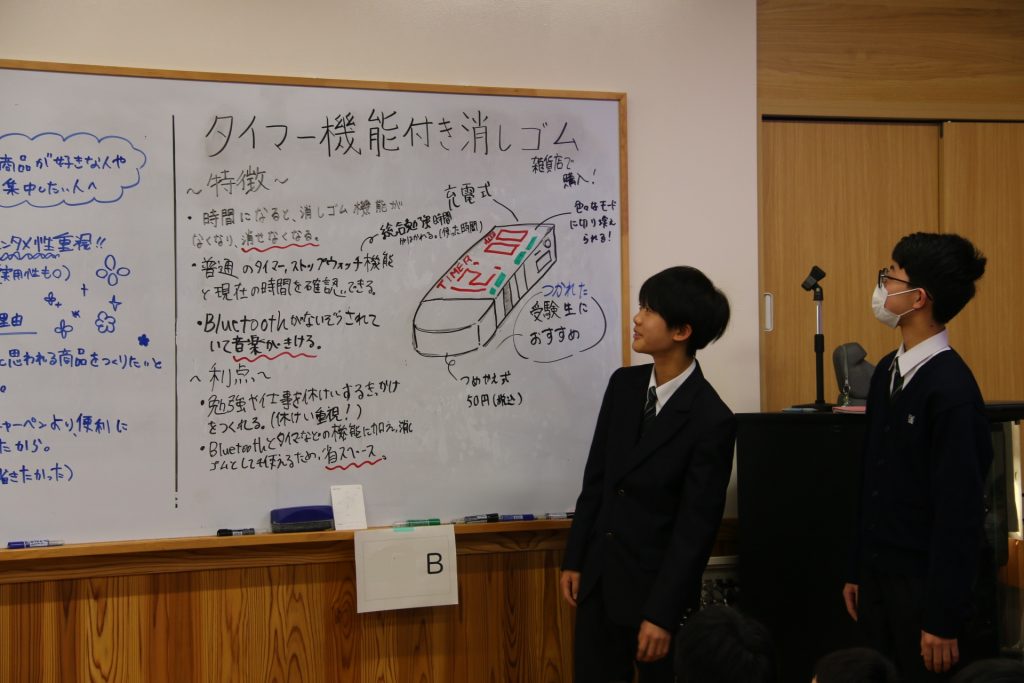 商品が好きな人や
集中したい人へ
ンタメ性重視!!
実用性も○)
理由
に思われる商品をつくりたいと
ャーペンより、便利に
たから。
省きたかった)
タイマー機能付き消しゴム
~特徴~
・時間になると、消しゴム機能が
なくなり、消せなくなる。
・普通のタイマー,ストップウォッチ機能
と現在の時間を確認できる。
・Bluetoothがないぞうされて
いて音楽がきける。
~利点~
・勉強や仕事を休けいするきっかけ
をつくれる。(休けい重視!)
・Bluetoothとタイマなどの機能に加え,消し
ゴムとしても使えるため,省スペース。
雑貨店で
購入!
充電式
色々なモード
に切り替え
られる!
総合勉強時間
がはかれる。(使った時間)
TIMER
つかれた
受験生に
おすすめ
つめかえ式
50円(税込)
B